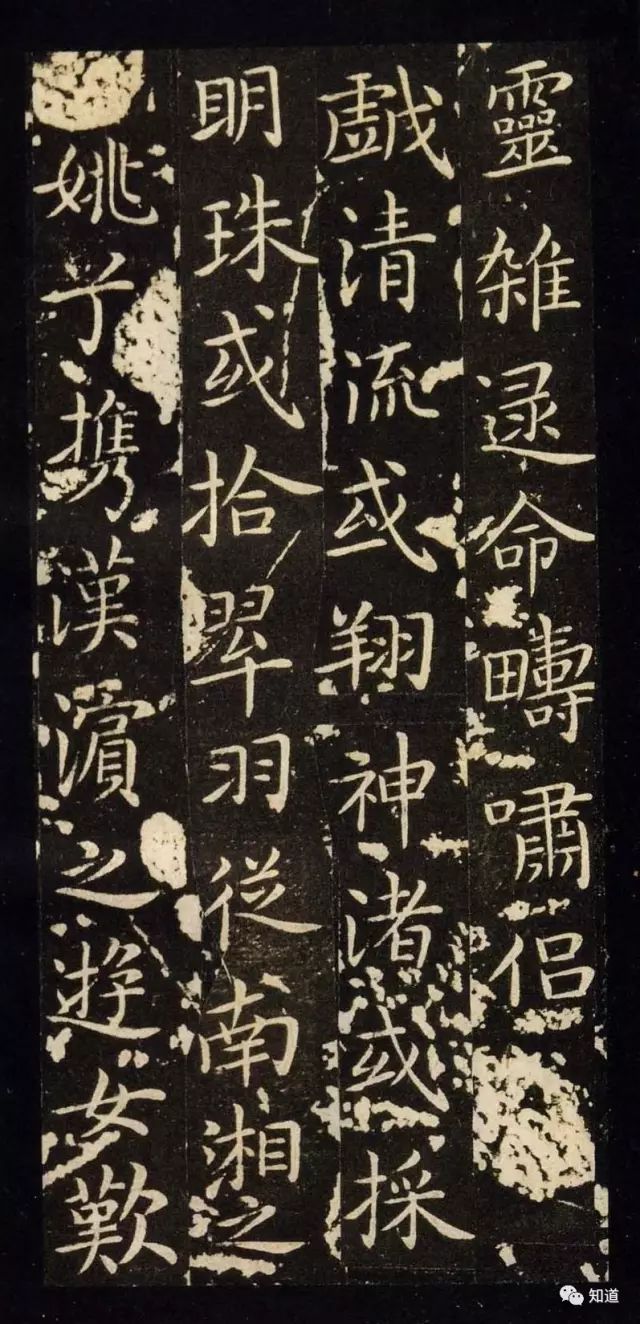 靈雜遝命疇嘯侣
戯清流或翔神渚或採
明珠或拾翠羽従南湘之
姚兮携漢濱之遊女歎
知道